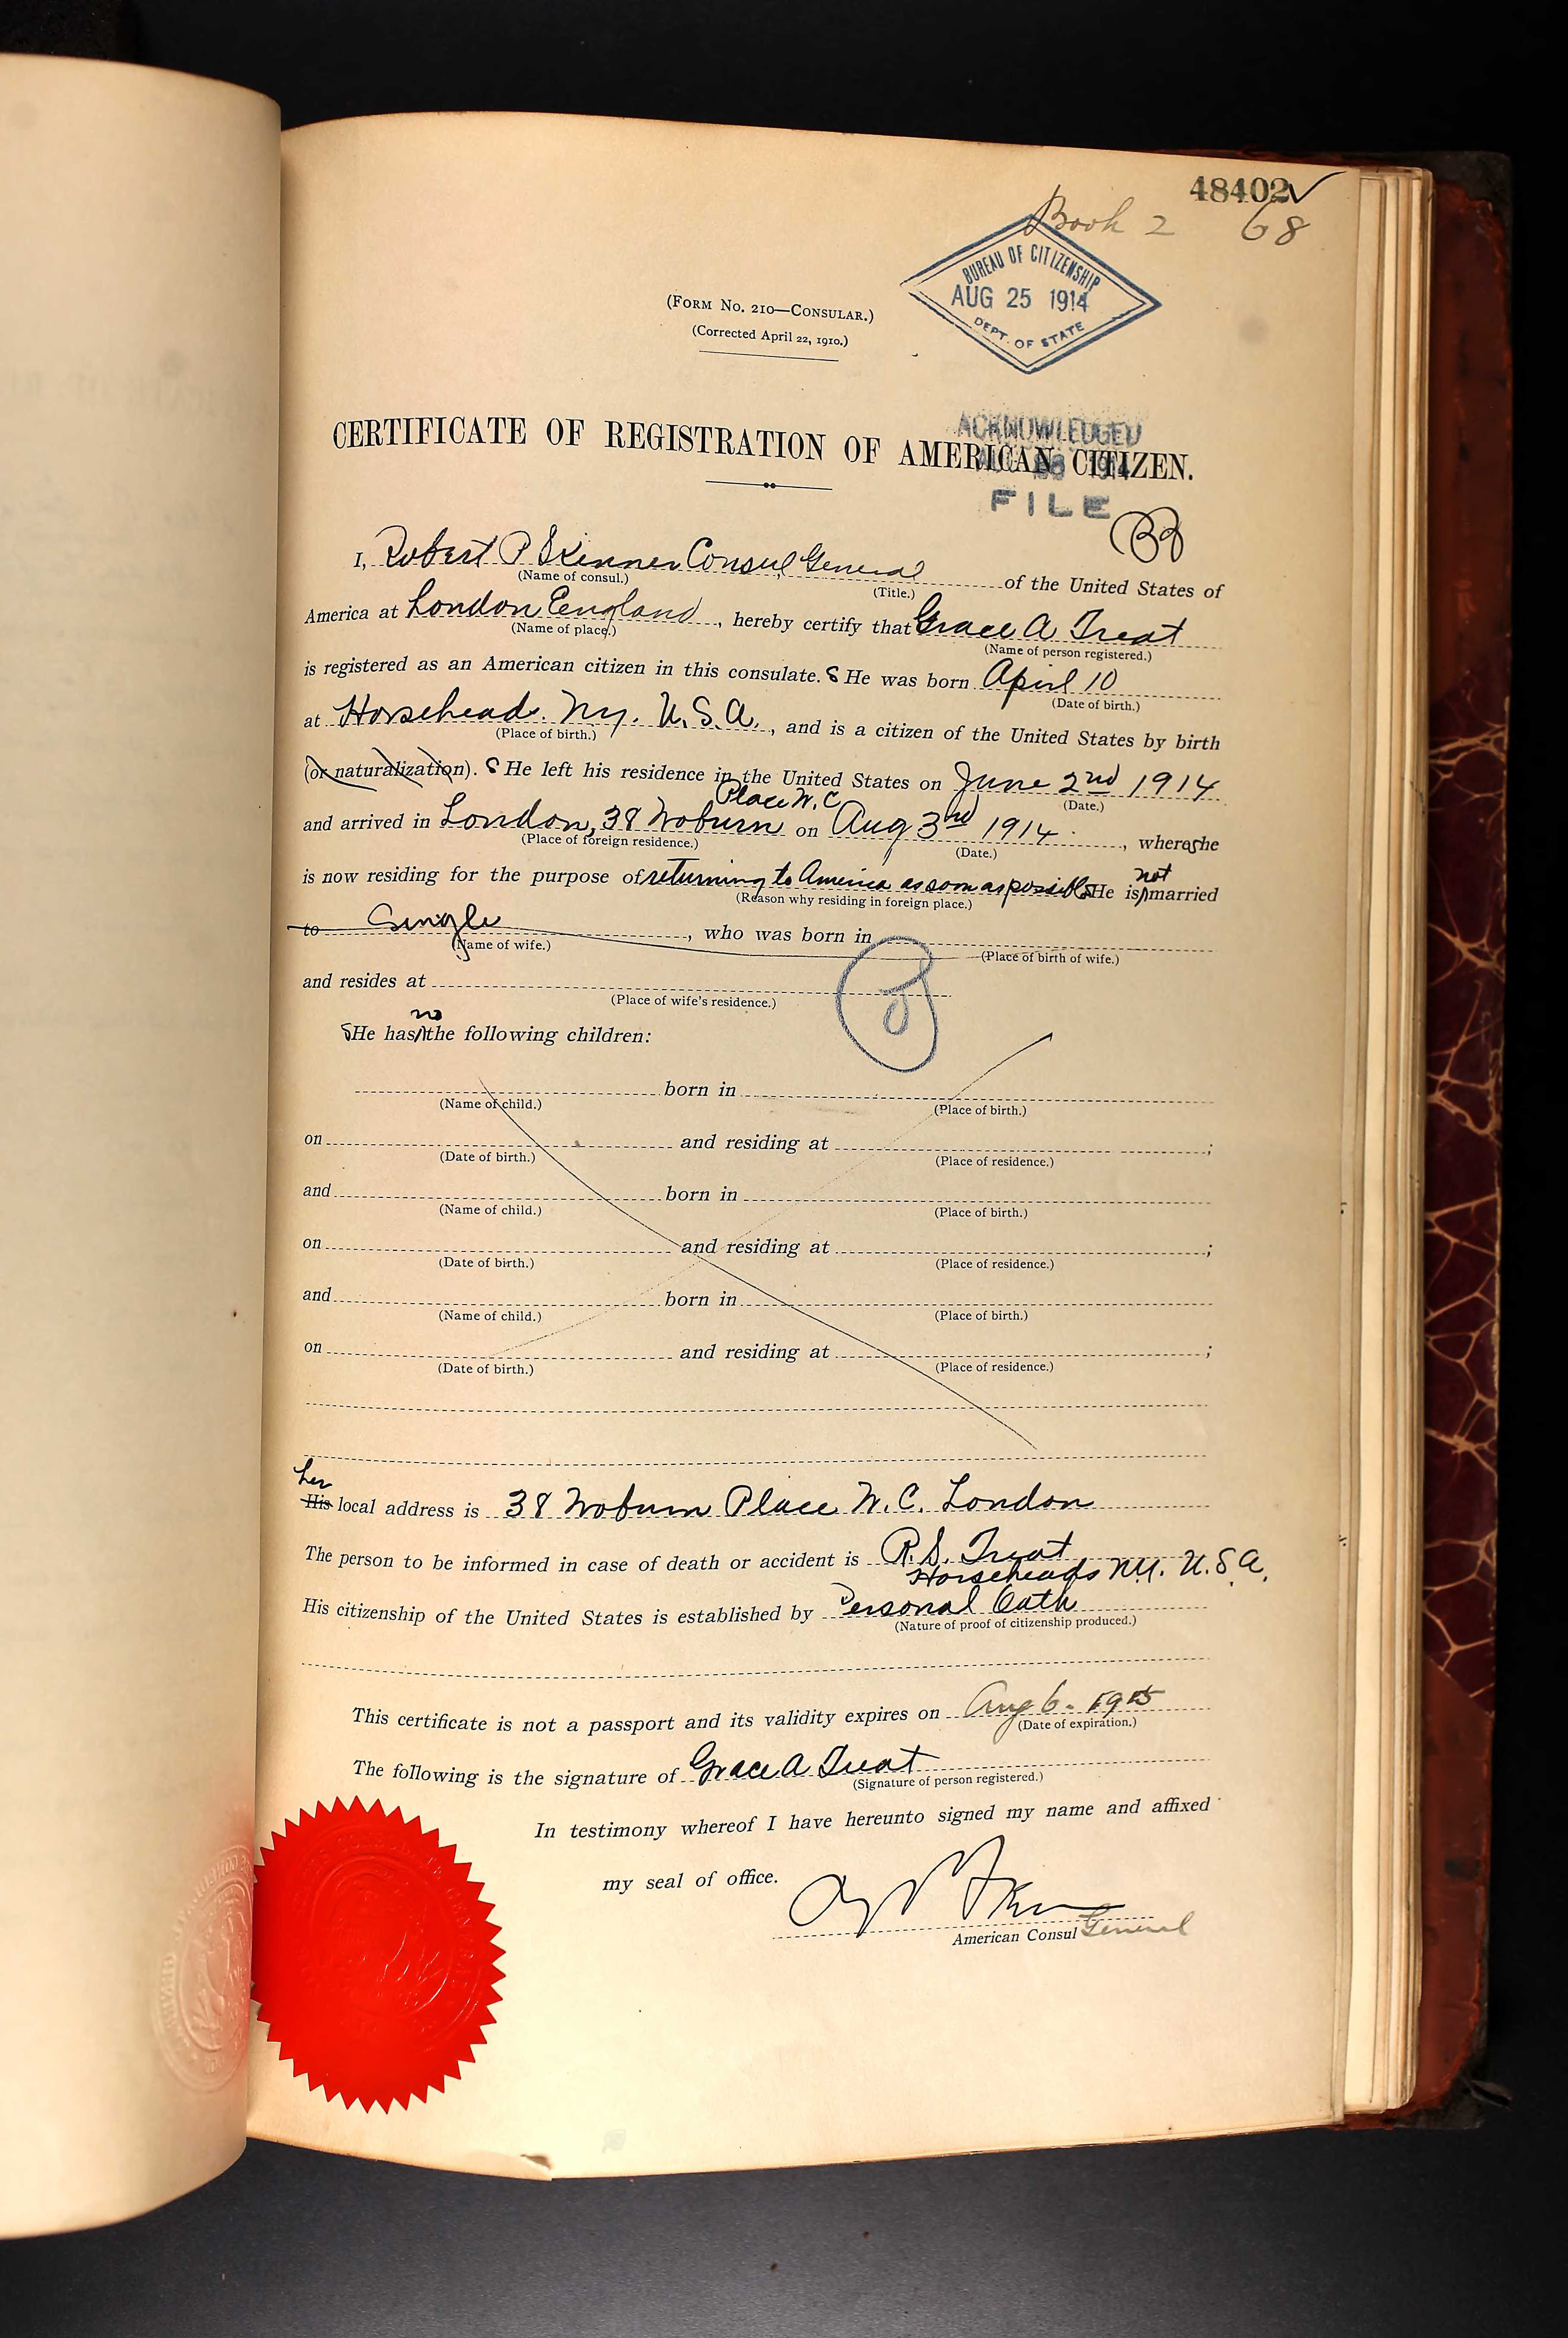 48402✓
Book 2 68
BUREAU OF CITIZENSHIP
AUG 25 1914
DEPT. OF STATE
(FORM NO. 210—CONSULAR.)
(Corrected April 22, 1910.)
ACKNOWLEDGED
CERTIFICATE OF REGISTRATION OF AMERICAN CITIZEN.
1914
FILE
I, Robert P Skinner Consul General of the United States of
(Name of consul.) (Title.)
America at London England, hereby certify that Grace A Treat
(Name of place.) (Name of person registered.)
is registered as an American citizen in this consulate. SHe was born April 10
(Date of birth.)
at Horsehead. Ny. U.S.A., and is a citizen of the United States by birth
(Place of birth.)
(or naturalization). SHe left his residence in the United States on June 2nd 1914
(Date.)
Place W.C
and arrived in London, 38 Woburn on Aug 3rd 1914, where she
(Place of foreign residence.) (Date.)
is now residing for the purpose of returning to America as soon as possible SHe is not married
(Reason why residing in foreign place.)
to Single, who was born in
(Name of wife.) (Place of birth of wife.)
and resides at
(Place of wife's residence.)
SHe has no the following children:
born in
(Name of child.) (Place of birth.)
on and residing at ;
(Date of birth.) (Place of residence.)
and born in
(Name of child.) (Place of birth.)
on and residing at ;
(Date of birth.) (Place of residence.)
and born in
(Name of child.) (Place of birth.)
on and residing at ;
(Date of birth.) (Place of residence.)
her
His local address is 38 Woburn Place W.C. London
The person to be informed in case of death or accident is R.S. Treat
Horseheads NY. U.S.A.
His citizenship of the United States is established by Personal Oath
(Nature of proof of citizenship produced.)
This certificate is not a passport and its validity expires on Aug 6- 1915
(Date of expiration.)
The following is the signature of Grace A Treat
(Signature of person registered.)
In testimony whereof I have hereunto signed my name and affixed
my seal of office.
American Consul General